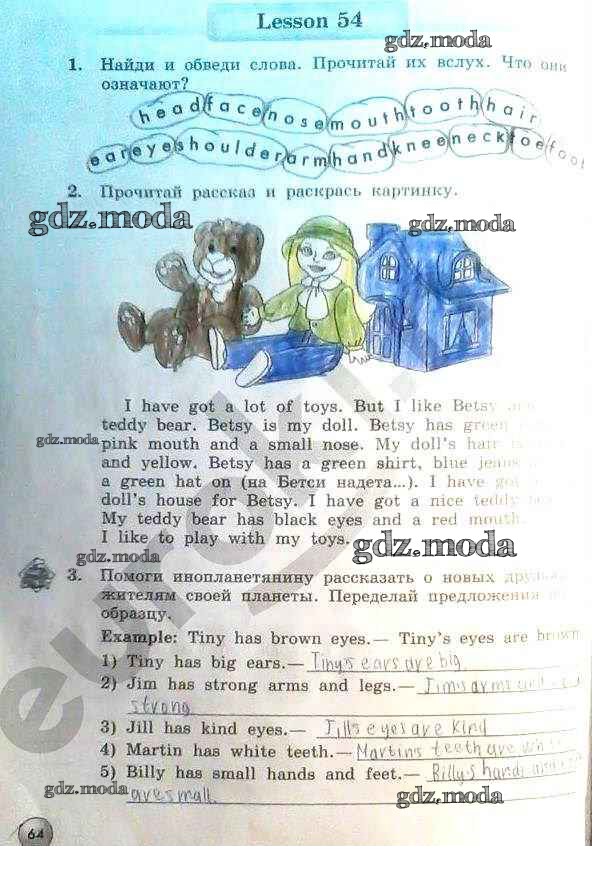 Lesson 54
gdz.moda
1. Найди и обведи слова. Прочитай их вслух. Что они
означают?
headfacenosemouthtoothhair
eareyeshoulderarmhandkneenecktoefoot
2. Прочитай рассказ и раскрась картинку.
gdz.moda
gdz.moda
I have got a lot of toys. But I like Betsy
teddy bear. Betsy is my doll. Betsy has green
gdz.moda
pink mouth and a small nose. My doll's hair
and yellow. Betsy has a green shirt, blue jeans
a green hat on (на Бетси надета...). I have got
doll's house for Betsy. I have got a nice teddy
My teddy bear has black eyes and a red mouth.
I like to play with my toys.
gdz.moda
gdz.moda
3. Помоги инопланетянину рассказать о новых
жителям своей планеты. Переделай предложения
образцу.
Example: Tiny has brown eyes.— Tiny's eyes are brown
1) Tiny has big ears.— Tiny's ears are big
2) Jim has strong arms and legs.— Jim's arms and
strong
3) Jill has kind eyes.— Jill's eyes are kind
4) Martin has white teeth.— Martin's teeth are
5) Billy has small hands and feet.— Billy's hands and
gdz.moda
are small.
gdz.moda
64
eurokI